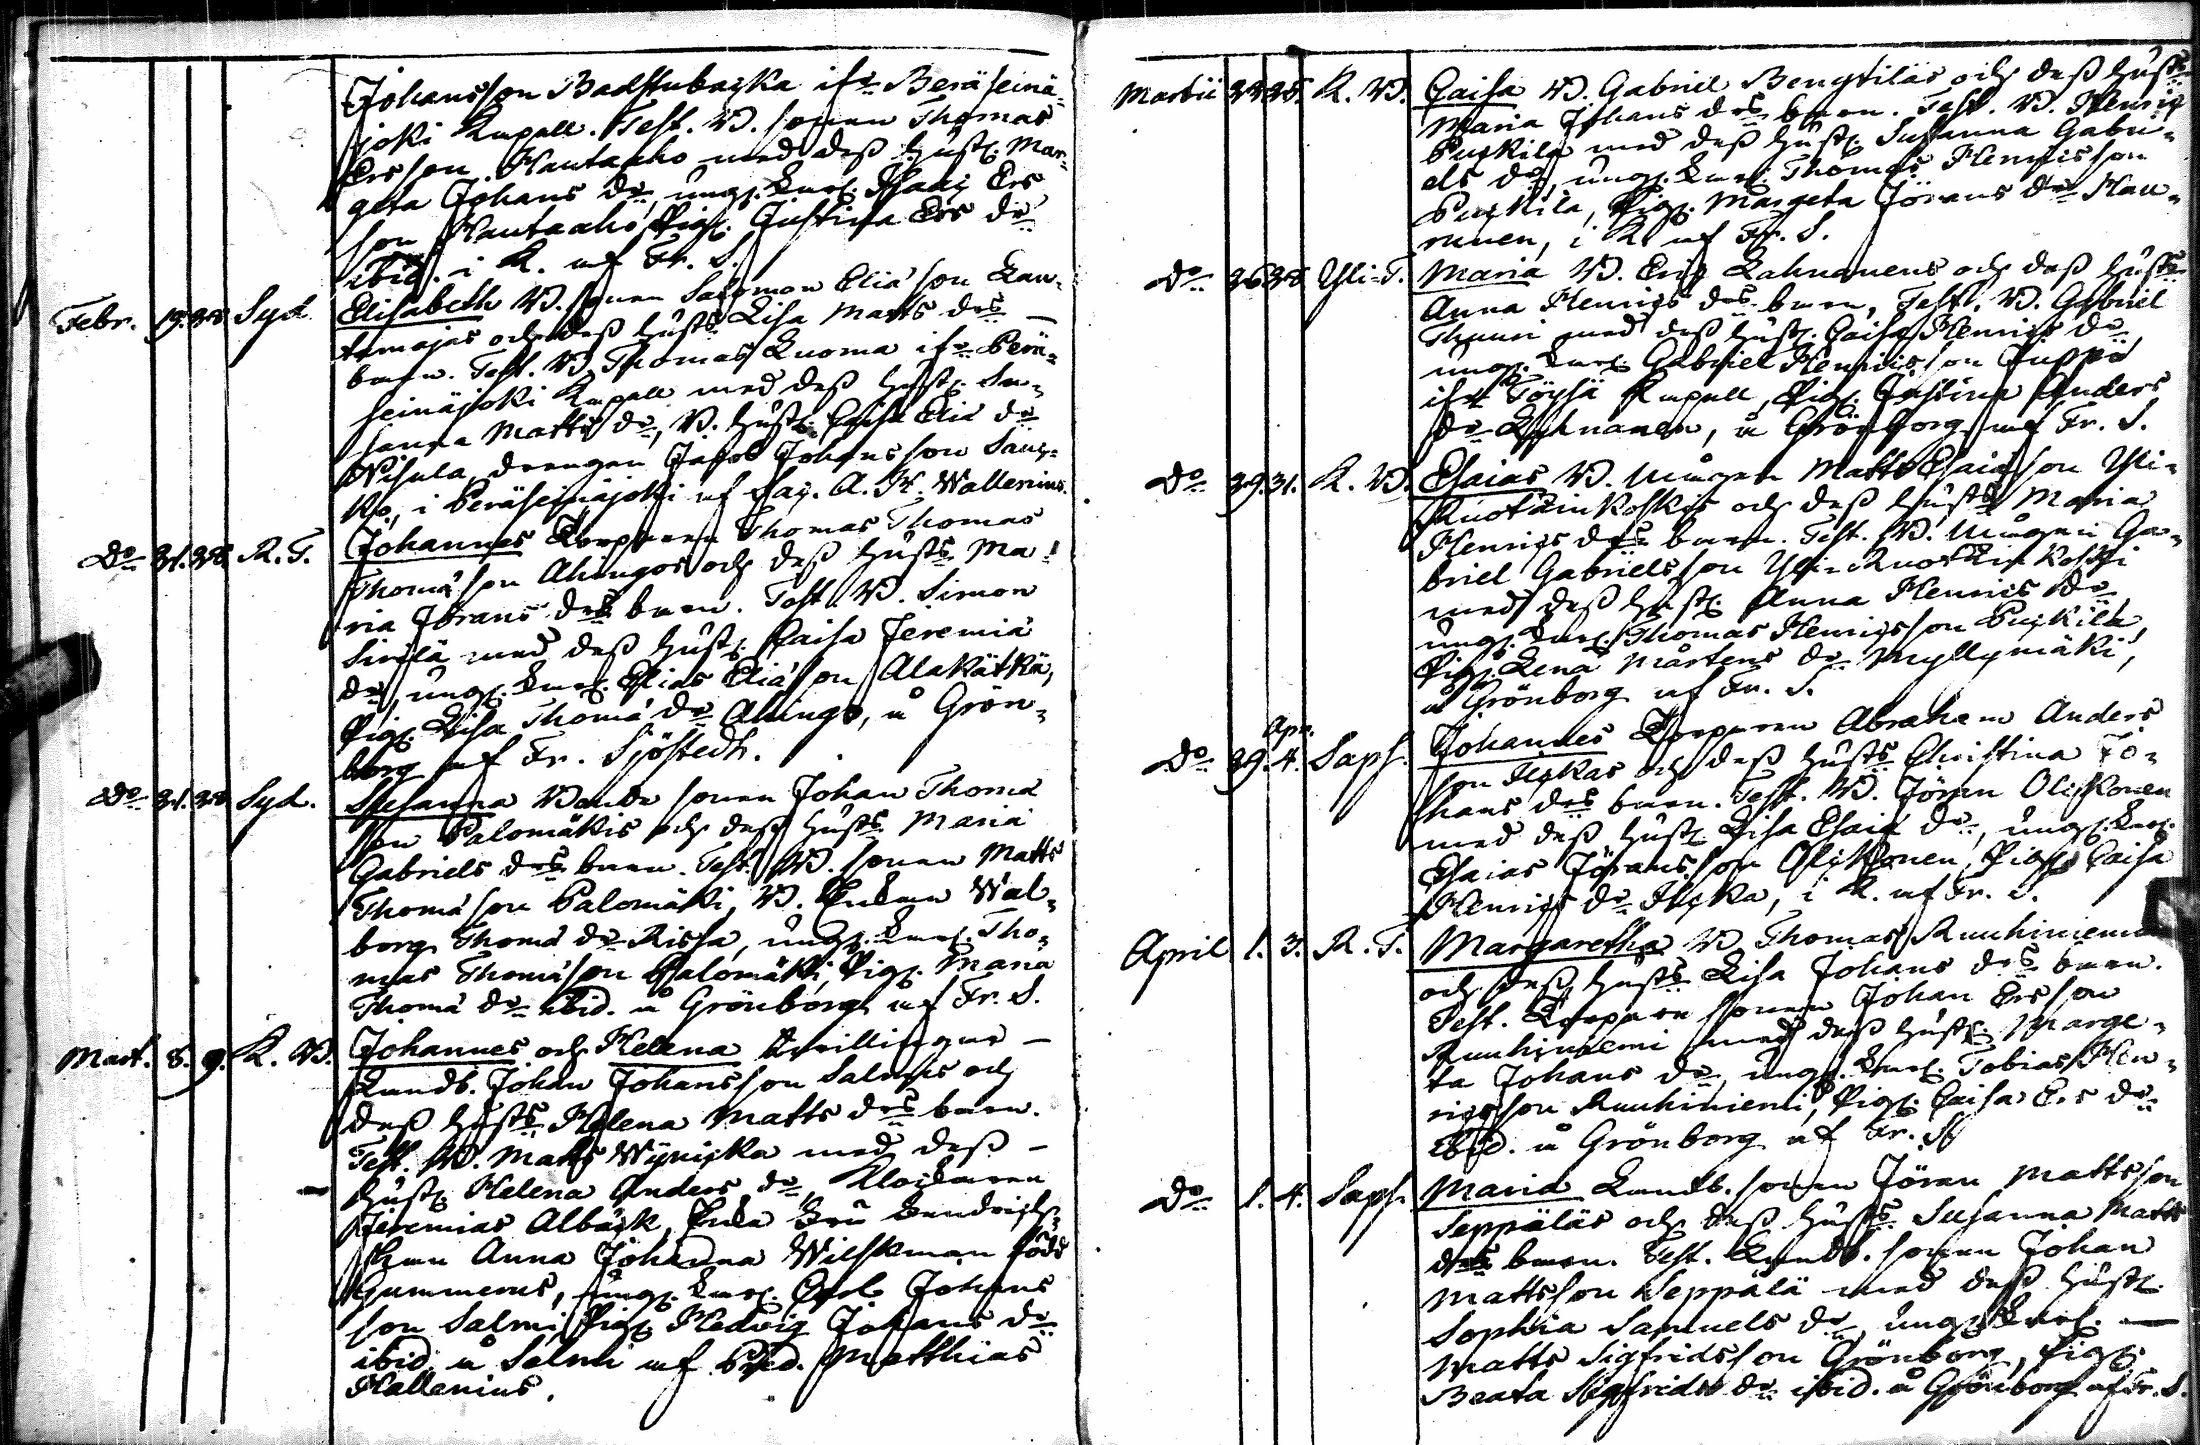 Johansson Badstubacka ifr. Peräseinä-
joki Kapell. Test. B. sonen Thomas
Ersson Hautaaho med dess hustr. Mar-
geta Johans dr, ungk. Isaac Ers
son Hautaaho, Pig. Justina Ers dr
ibid. i K. af Fr. S.
Febr. 19. 25. Syd. Elisabeth B. sonen Salomon Eliä son Lan-
tamajas och dess hustrs Lisa Matts drs
barn. Test. B. Thomas Luoma ifr. Perä-
seinäjoki Kapell med dess hustr. Su-
sanna Matts dr, B. hustr. Caisa Eliä dr
Wisula, drengen Jacob Johansson
i Peräseinäjoki af Sac. A. H. Wallenius.
Do 21. 25. K. T. Johannes Torparen Thomas Thomas
Thomä son Ahingos och dess hustrs Ma-
ria Jörans drs barn. Test. B. Simon
Sivulä med dess hustr. Caisa Jeremiä
dr, ungk. Elias Eliä son Alakätkä,
Pig. Lisa Thomä dr Ahingo, å Grön-
borg af Fr. Sjöstedt.
Do 21. 25. Syd. Susanna Bonde sonen Johan Thomä
son Palomäkis och dess hustrs Maria
Gabriels drs barn. Test. B. sonen Matts
Thomä son Palomäki, B. Enkan Wal-
borg Thomä dr Rissa, ungk. Tho-
mas Thomä son Palomäki, Pig. Maria
Thomä dr ibid. å Grönborg af Fr. S.
Mart. 8. 9. K. B. Johannes och Helena Twillingar
Landb. Johan Johansson Salmis och
dess hustrs Helena Matts drs barn.
Test. B. Matts Wynicka med dess
hustr. Helena Anders dr, Klockaren
Jeremias Albäck, Enke Fru
Anna Johanna Wilskman född
Gummerus, ungk. Carl Johans
son Salmi, Pig. Hedvig Johans dr
ibid. å Salmi af Pred. Matthias
Hallenius.
Martii 25. K. B. Caisa B. Gabriel Bengtiläs och dess hustrs
Maria Johans drs barn. Test. B. Henric
Puckila med dess hustr. Susanna Gabri-
els dr, ungk. Thomas Henricsson
Puckila, Pig. Margeta Jörans dr Han-
nuinen, i K. af Fr. S.
Do 26. 28. Yli-T. Maria B. Eric Lahnanens och dess hustrs
Anna Henrics drs barn, Test. B. Gabriel
Thuuri med dess hustr. Caisa Henrics dr
ungk. Gabriel Henricsson Juppo
ifr. Töysä Kapell, Pig. Justina Anders
dr Lahnanen, å Grönborg af Fr. S.
Do 29. 31. K. B. Esaias B. Mågen Matts Esaiä son Yli-
Ruotzinkoskis och dess hustrs Maria
Henrics drs barn. Test. B. Mågen Ga-
briel Gabrielsson Yli-Ruotzinkoski
med dess hustr. Anna Henrics dr
ungk. Thomas Henricsson Puckila
Pig. Lena Mårtens dr Myllymäki,
å Grönborg af Fr. S.
Apr.
Do 29. 4. Saps. Johannes Torparen Abraham Anders
son Ilckas och dess hustrs Christina Jo-
hans drs barn. Test. B. Jöran Olickonen
med dess hustr. Lisa Esaiä dr, ungk.
Esaias Jöransson Olickonen, Pig. Caisa
Henrics dr Ilcka, i K. af Fr. S.
April 1. 3. K. T. Margaretha B. Thomas Ruuhiniemis
och dess hustrs Lisa Johans drs barn.
Test. Torpare sonen Johan Ersson
Ruuhiniemi med dess hustr. Marge-
ta Johans dr, ungk. Tobias Hen-
ricsson Ruuhiniemi, Pig. Caisa Ers dr
ibid. å Grönborg af Fr. S.
Do 1. 4. Saps. Maria Landb. sonen Jöran Mattsson
Seppäläs och dess hustrs Susanna Matts
drs barn. Test. Landb. sonen Johan
Mattsson Seppälä med dess hustr.
Sophia Samuels dr, ungk.
Matts Sigfridsson Grönborg, Pig.
Beata Sigfrids dr ibid. å Grönborg af Fr. S.